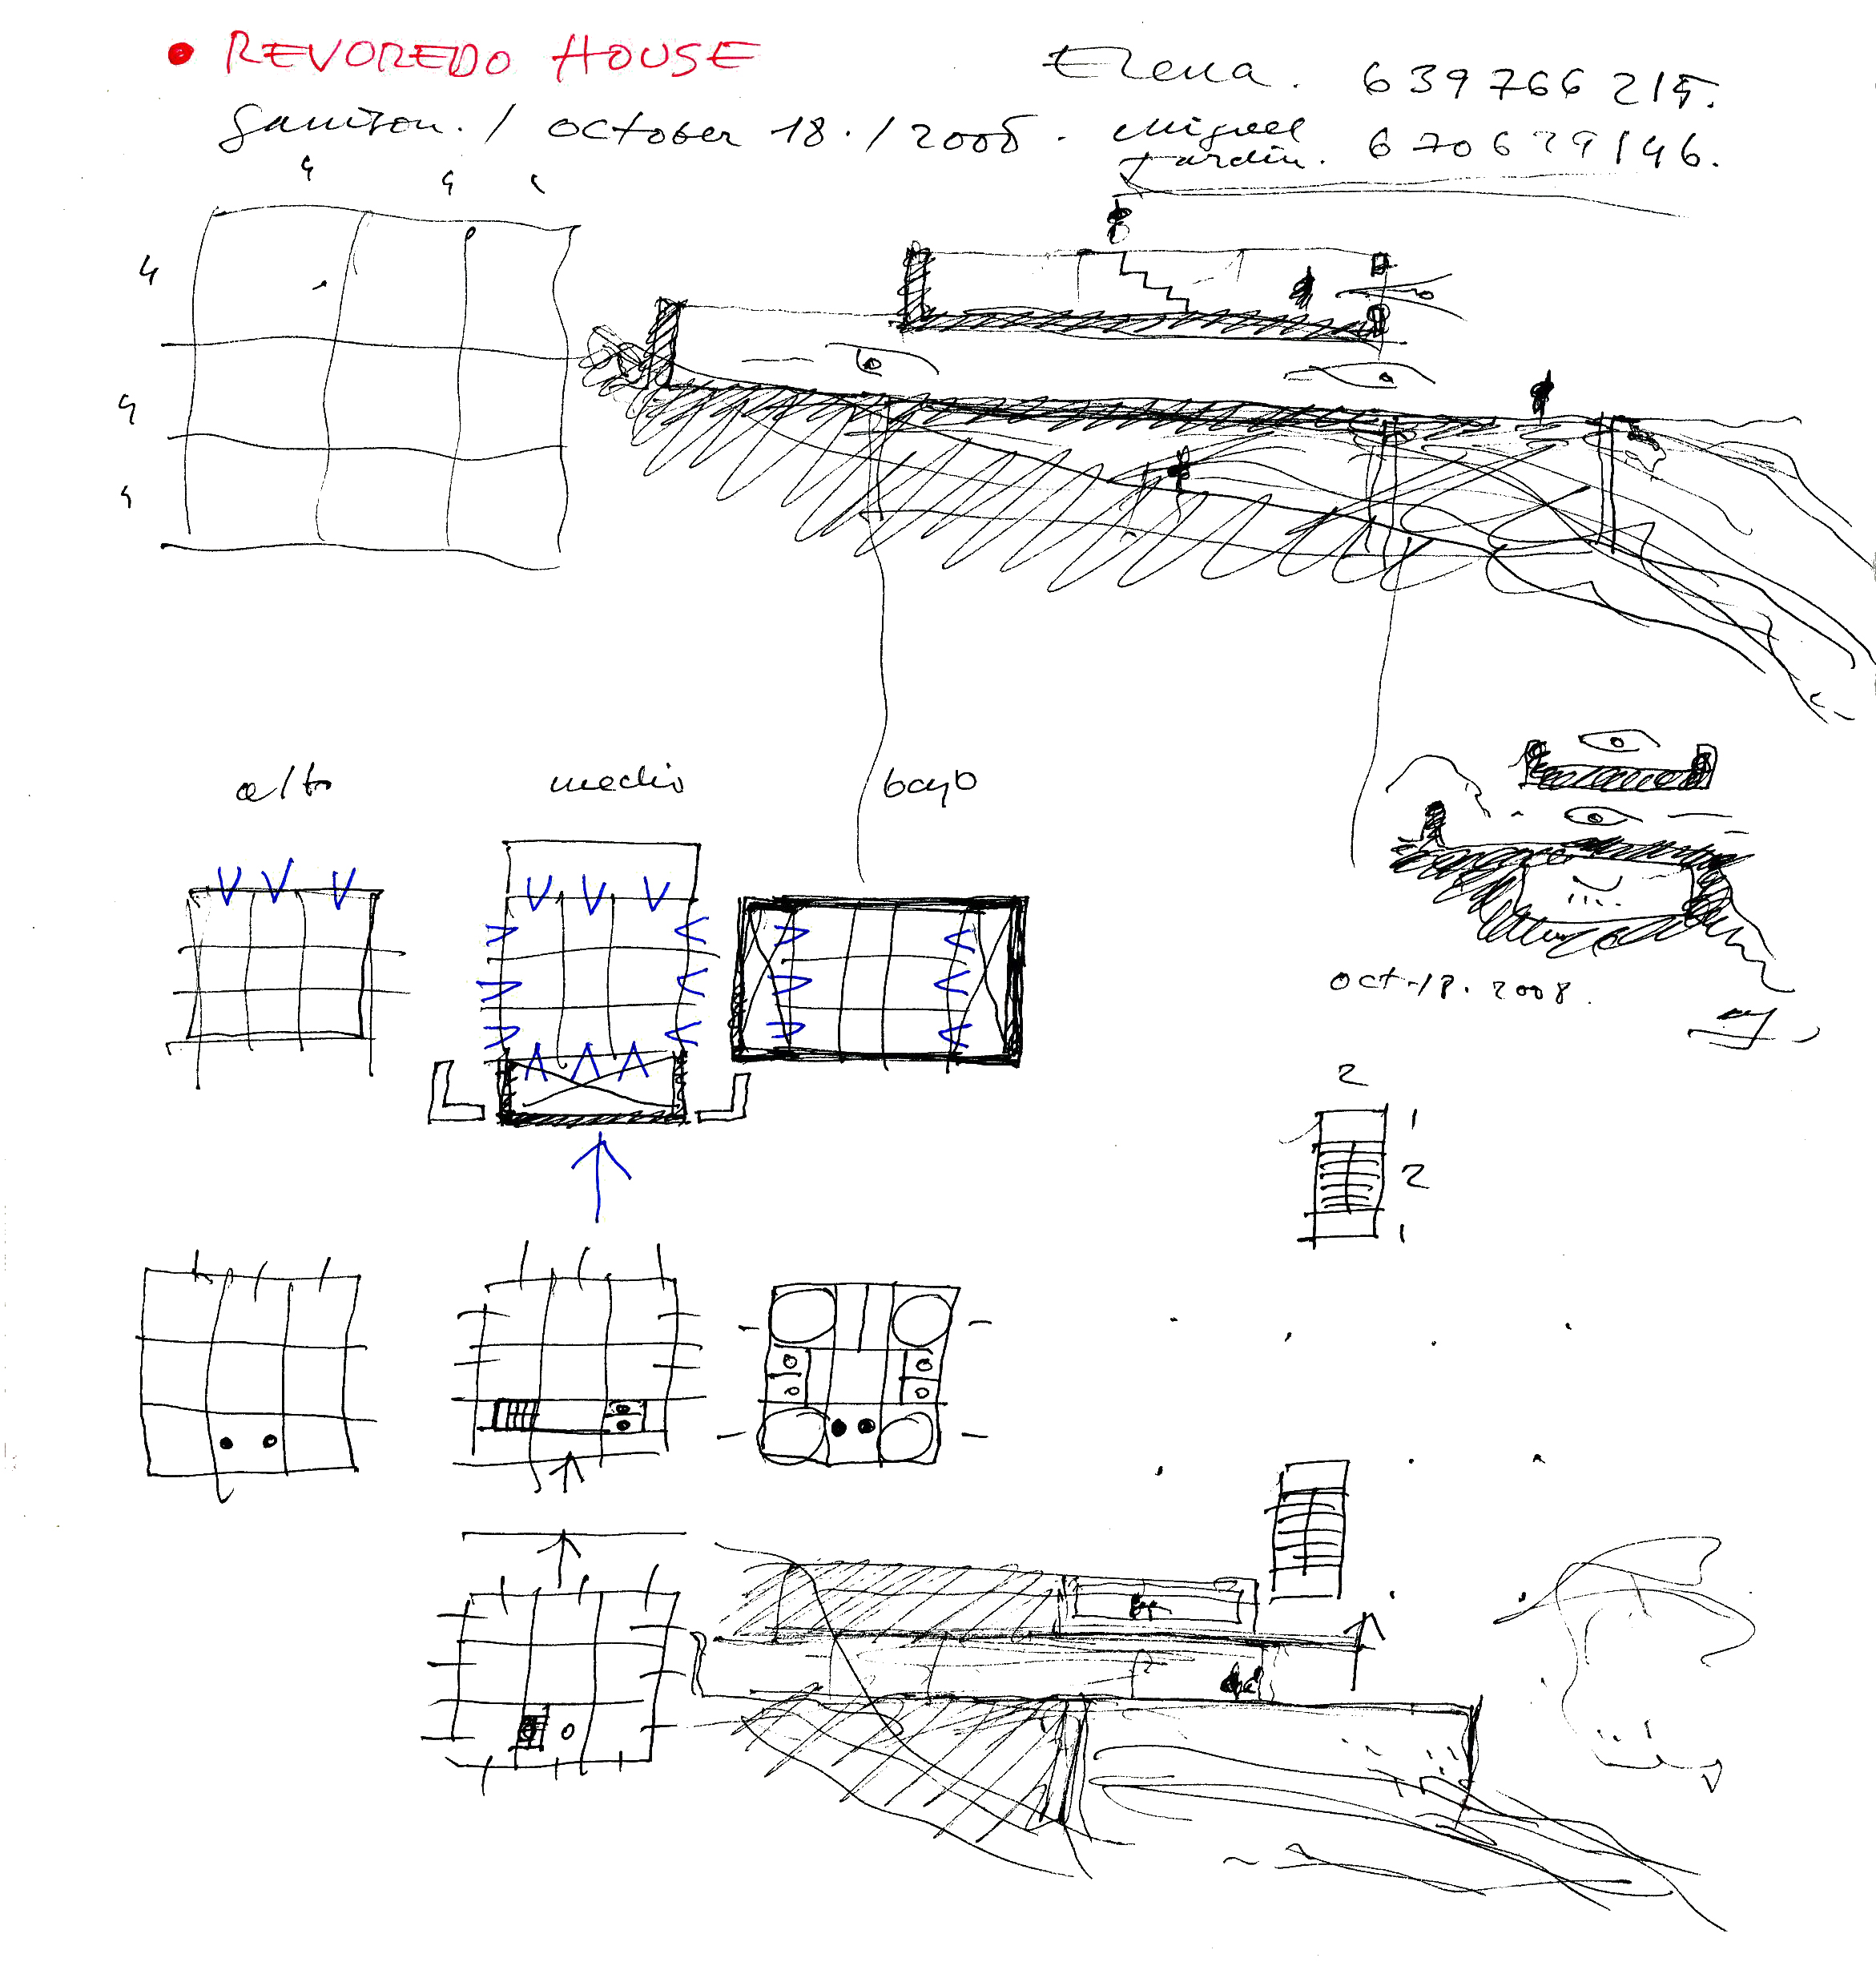 • REVOREDO HOUSE
Elena. 639766215.
Garrison. / october 18. / 2008. Miguel
Jardín. 670629146.
4 4
4
4
4
alto medio bajo
oct-18. 2008.
2
1
2
1